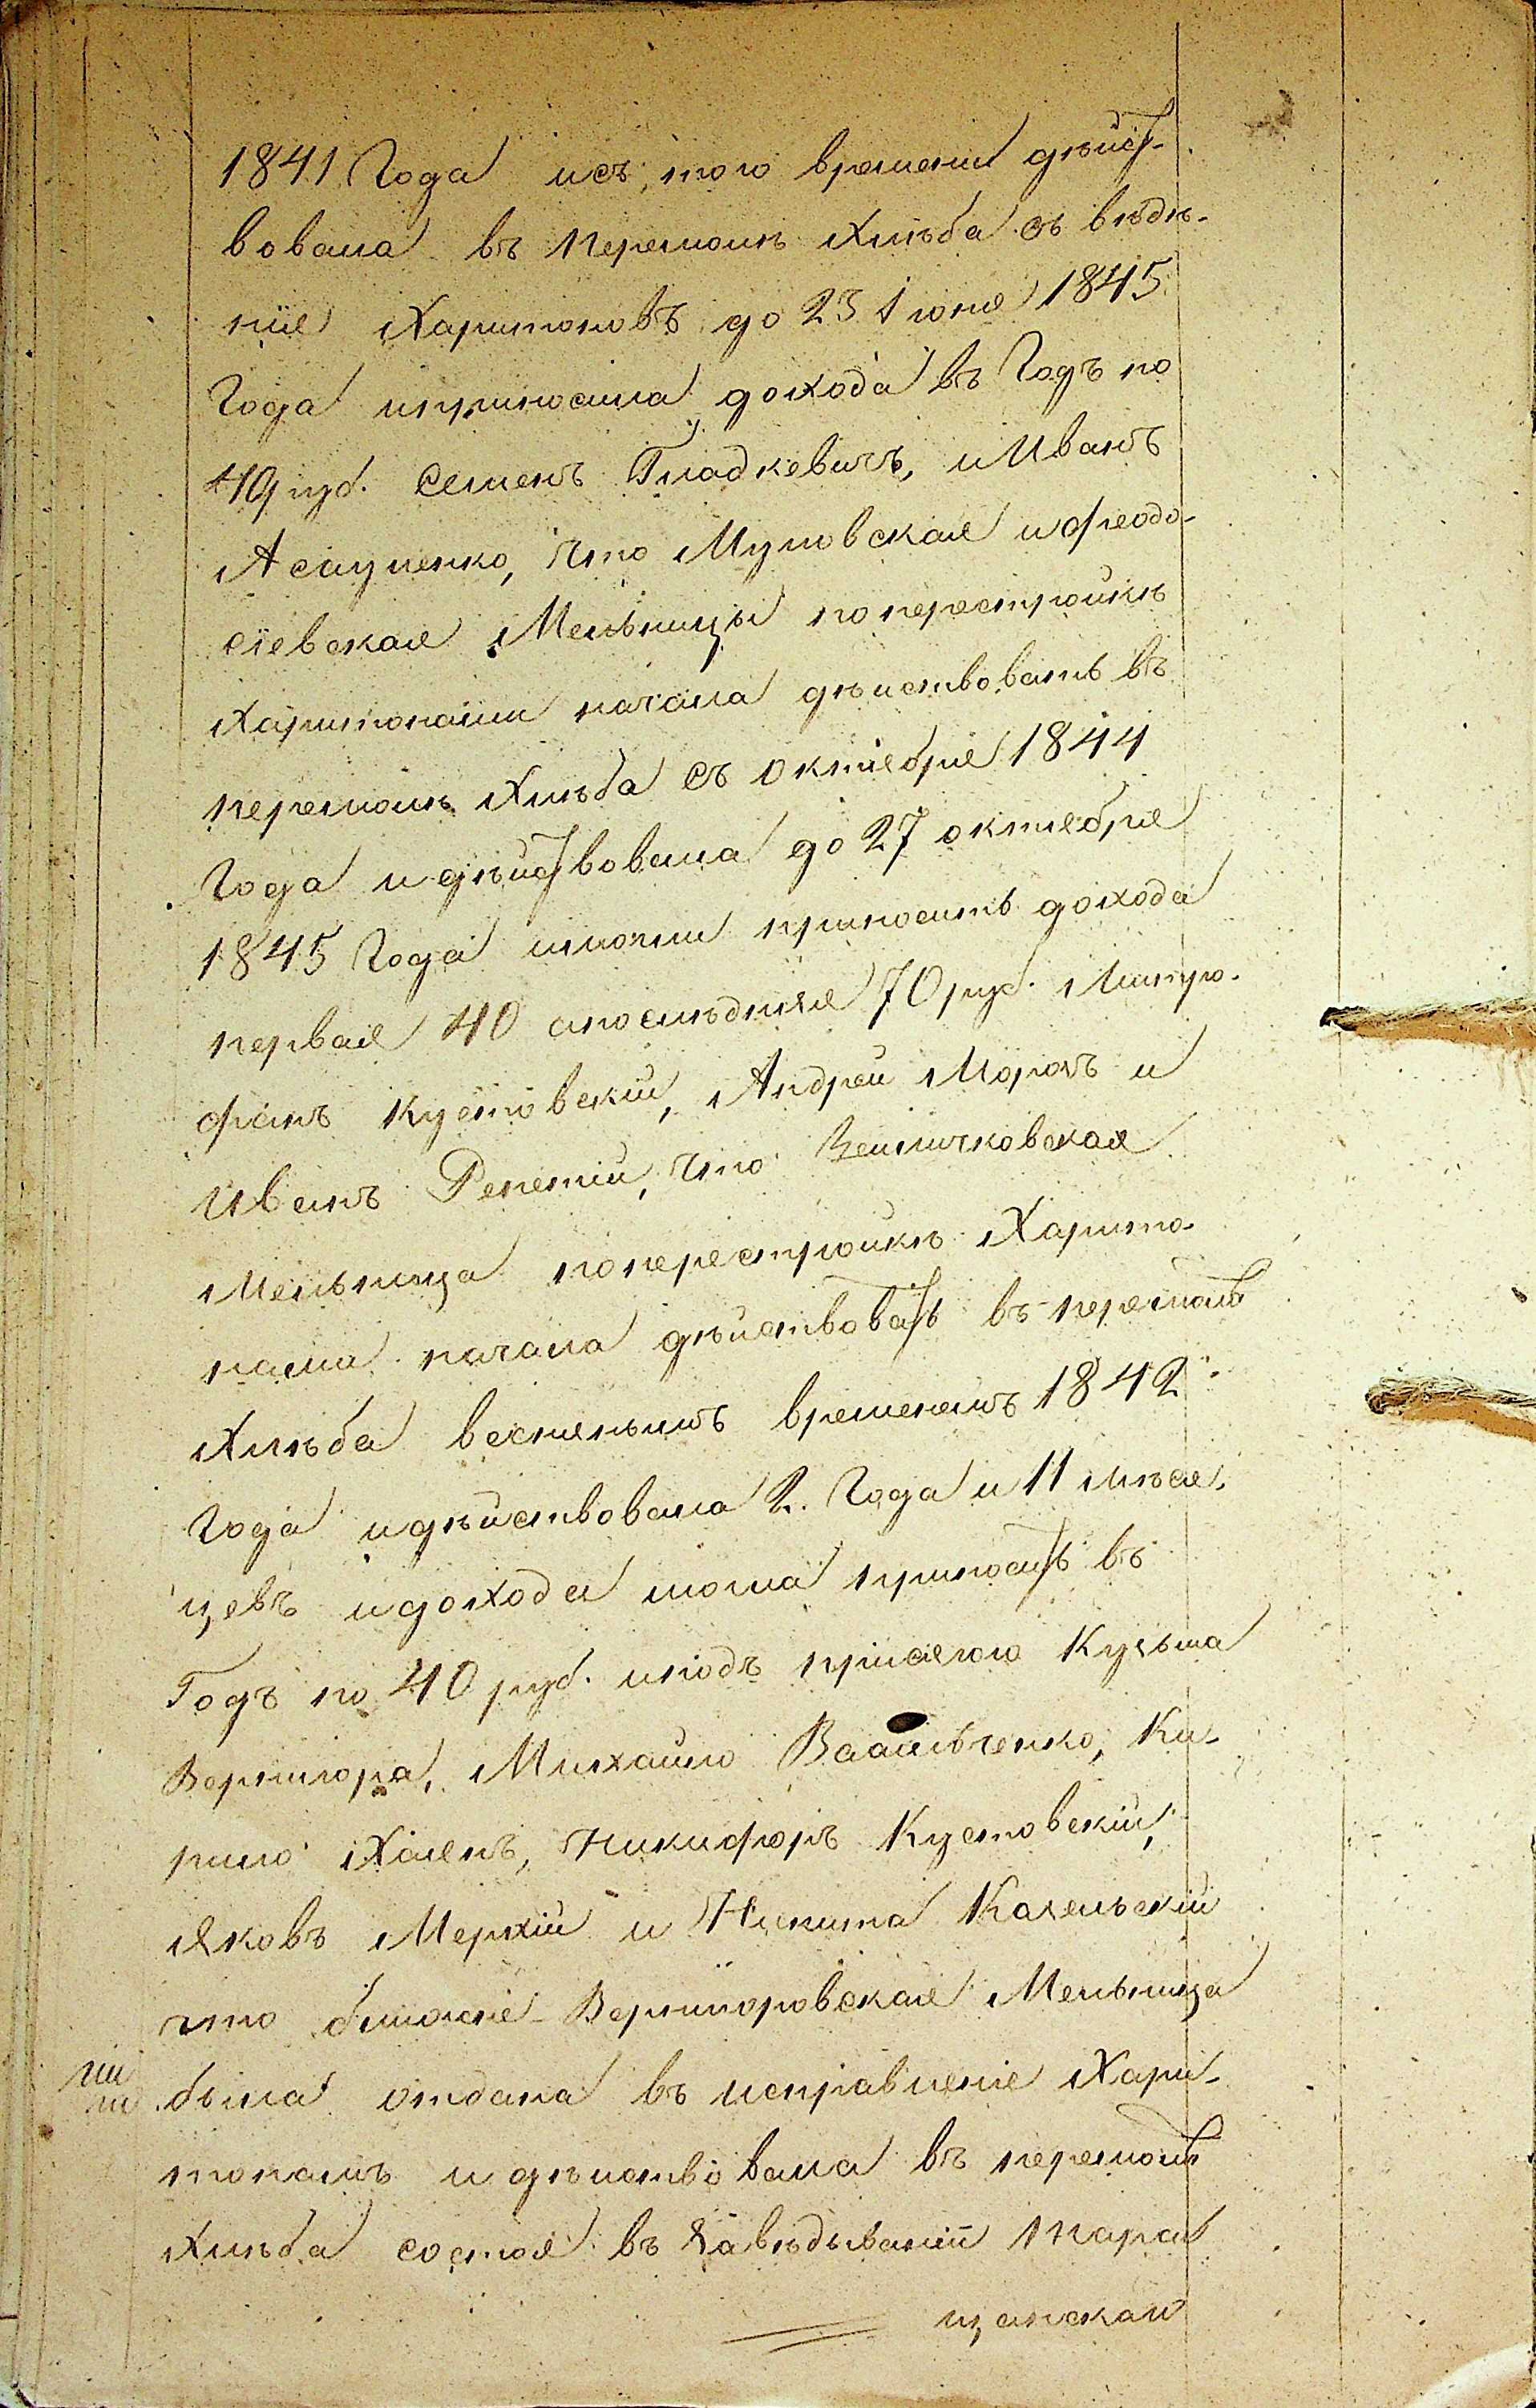 1841 Года и съ того времени дѣйст-
вовала въ перемолѣ хлѣба съ вѣдѣ-
нiе Харитоновъ до 23 Iюня 1845
Года и приносила дохода въ Годъ по
40 руб. Семенъ Гладкевичъ, и Иванъ
Асауленко, что Мутовская и Феодо-
сiевская Мельницы по перестройкѣ
Харитонами начала дѣйствовать въ
перемолѣ хлѣба съ октября 1844
Года и дѣйствовала до 27 октября
1845 Года и могли приносить дохода
первая 40 а послѣдняя 70 руб. Митро-
фанъ Кустовскiй, Андрей Морозъ и
Иванъ Репетiй, что Величковская
Мельница по перестройкѣ Харито-
нами начала дѣйствовать въ перемолѣ
хлѣба весеннымъ временемъ 1842
Года и дѣйствовала 2 Года и 11 мѣся-
цевъ и дохода могла приносить въ
Годъ по 40 руб. и подъ присягою Кузьма
Вернигора, Михайло Васильченко, Ки-
рило Халенъ, Никифоръ Кустовскiй,
Яковъ Мерзкiй и Никита Козельскiй
что ближне Вернигоровская Мельница
была отдана въ исправленiе Хари-
тонамъ и дѣйствовала въ перемолѣ
хлѣба состоя въ завѣдыванiй
щанской